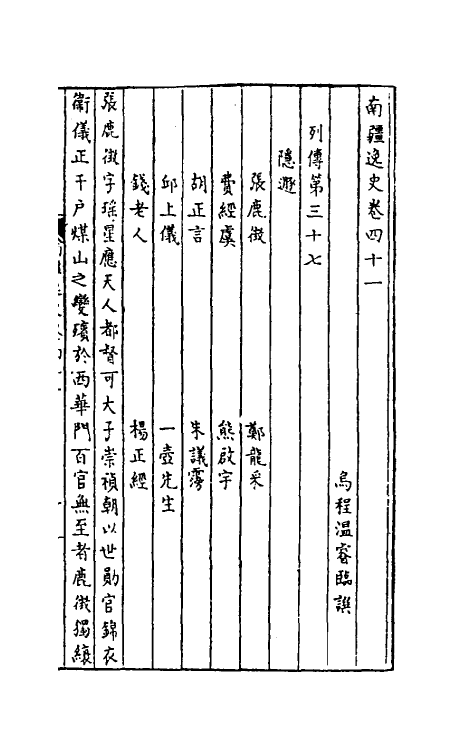 南疆逸史卷四十一
烏程温睿臨譔
列傳第三十七
隱遯
張鹿徴　鄭龍采
費經虞　熊啟宇
胡正言　朱議霶
邱上儀　一壺先生
錢老人　楊正經
張鹿徴字瑶星應天人都督可大子崇禎朝以世勛官錦衣
衞儀正千戶煤山之變殯於西華門百官無至者鹿徴獨縗